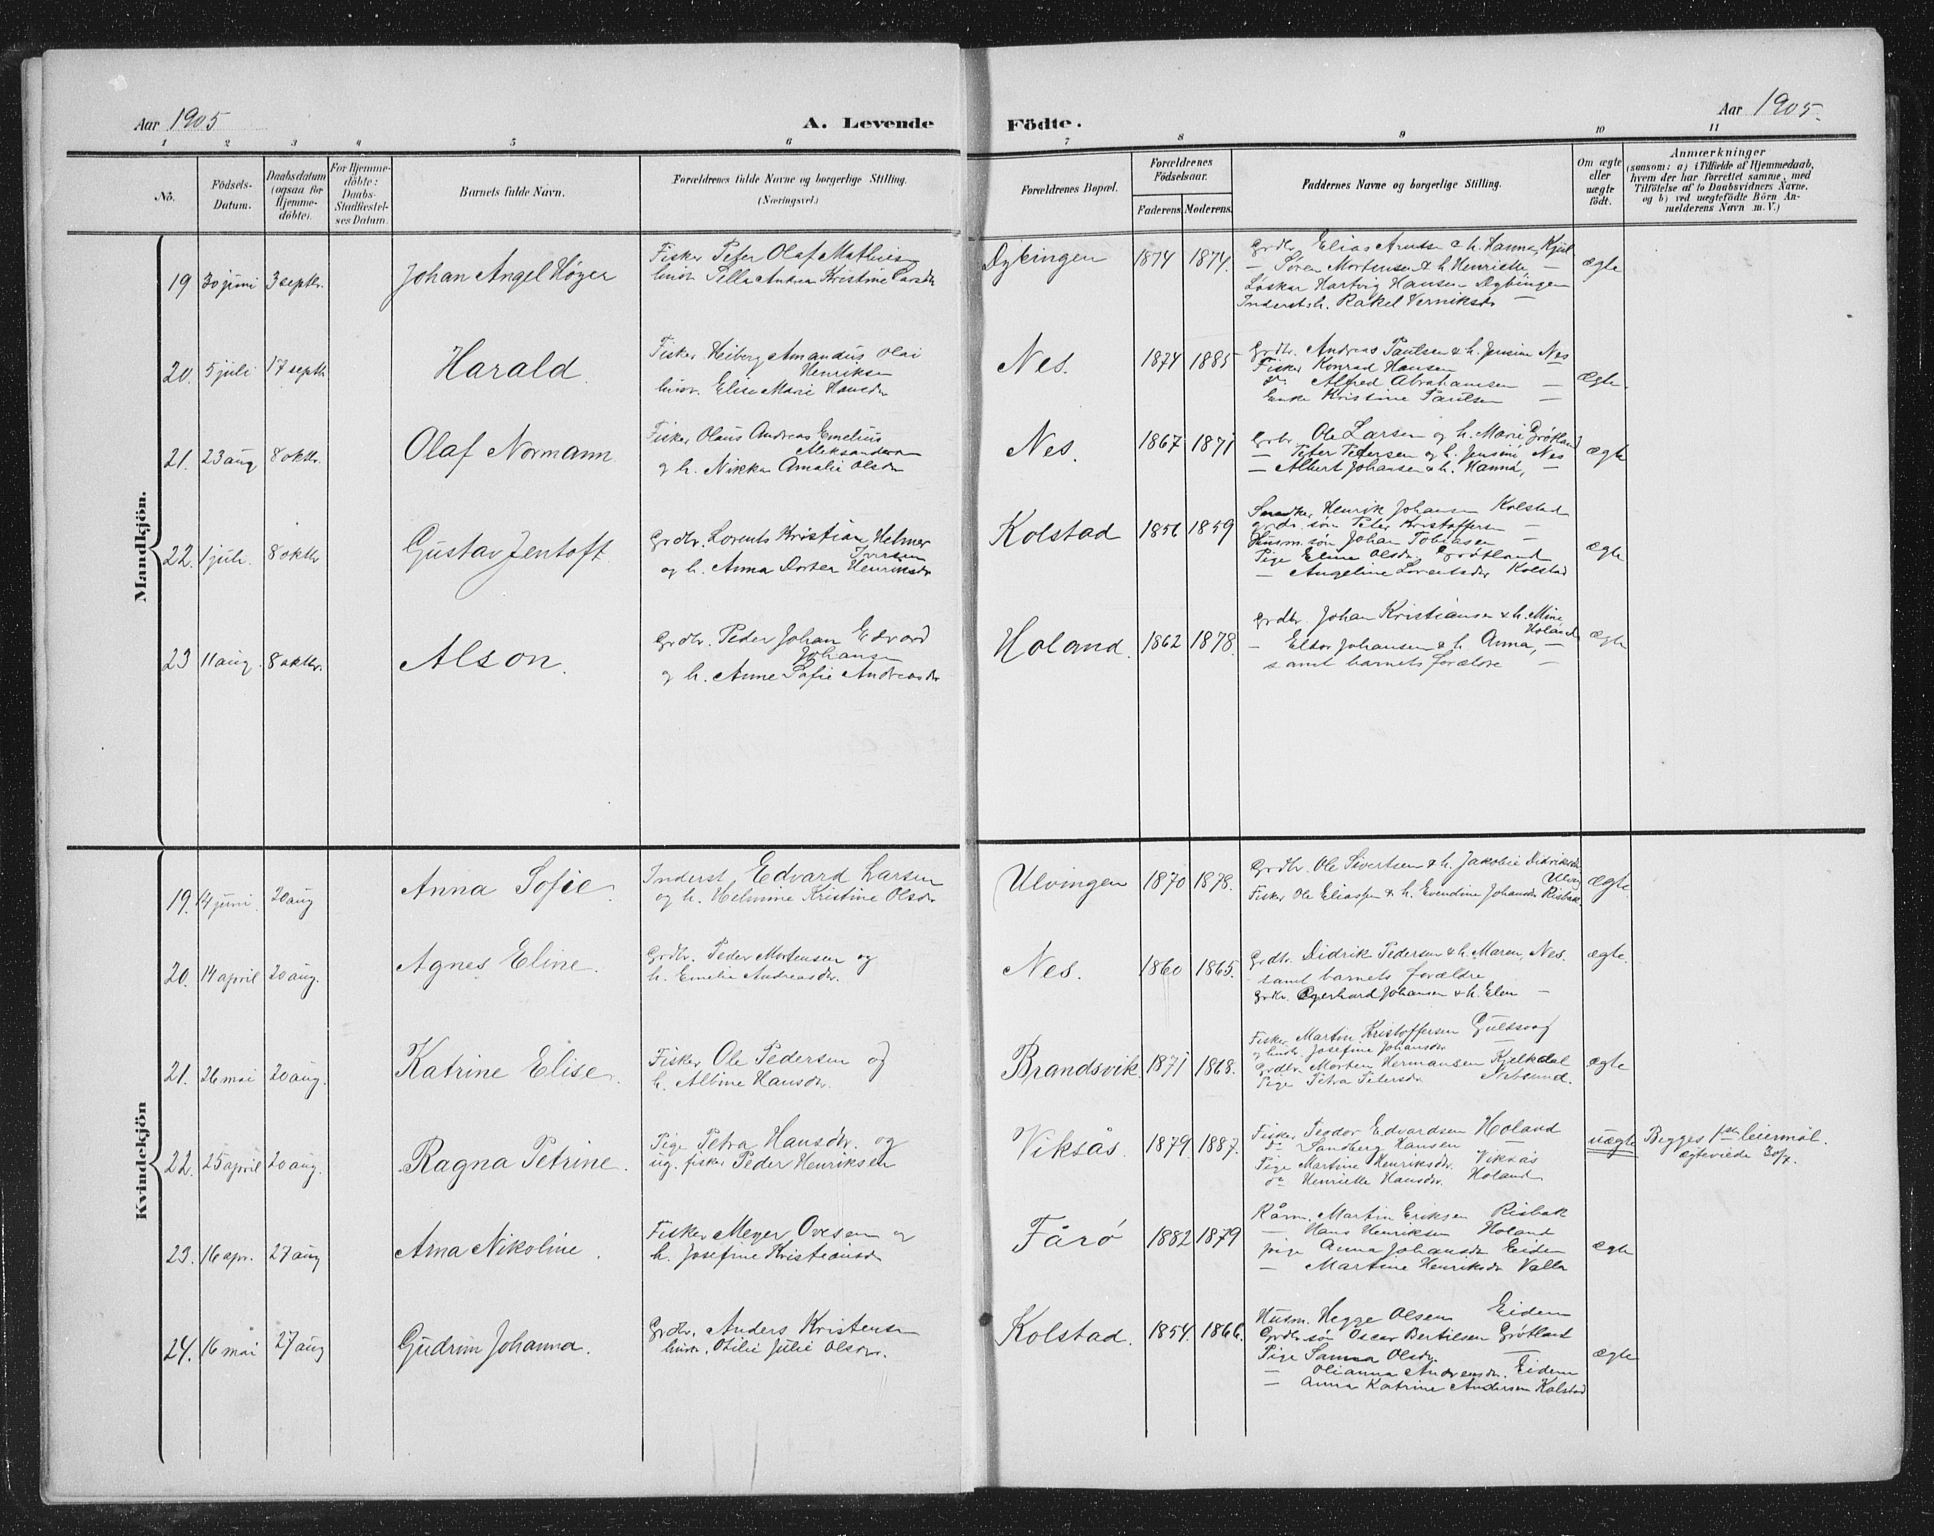 Aar 1905
A. Levende Födte.
Aar 1905.
1 2 3 4 5 6 7 8 9 10 11
No.
Födsels-Datum.
Daabsdatum (ogsaa for Hjemme-döbte).
For Hjemme-döbte: Daabs-Stadfæstel-ses Datum.
Barnets fulde Navn.
Forældrenes fulde Navne og borgerlige Stilling. (Næringsvei.)
Forældrenes Bopæl.
Forældrenes Födselsaar.
Faderens. Moderens.
Faddernes Navne og borgerlige Stilling.
Om ægte eller uægte födt.
Anmærkninger
(saasom: a) i Tilfælde af Hjemmedaab, hvem der har forrettet samme, med Tilföielse af to Daabsvidners Navne. og b) ved uægtefödte Börn An-melderens Navn m. V.)
Mandkjön.
19 30 juni 3 septbr. Johan Angel Höyer
Fisker Peter Olaf Mathies
hustr. Pella Andrea Kristine Larsdr
Dybingen 1874 1874.
Grdbr Elias Arntsen & h. Hanna,
— Sören Mortensen & h. Henriette, —
Loskar Hartvig Hansen Dybingen
Inderstsh. Rakel Verniksdr —
ægte
20. 5 juli 17 septbr Harald.
Fisker Heiberg Amandus Olai
Henriksen
hustr. Elise Marie Hansdr
Nes. 1874 1885
Grdbr. Andreas Paulsen & h. Jensine Nes
Fisker Konrad Hansen
do Alfred Abrahamsen —
Enke Kristine Paulsen —
ægte.
21. 23 aug 8 oktbr. Olaf Normann
Fisker Olaus Andreas Emelius
Aleksandersen
og h. Nikka Amalie Olsdr
Nes. 1867 1871
Grbr Ole Larsen og h. Marie, Grötland
— Peter Petersen og h. Jensine, Nes
— Albert Johansen & h. Hanna, —
ægte
22. 1 juli. 8 oktbr Gustav Jentoft.
Grdbr. Lorents Kristian Helmer
Iversen
og h. Anna Dortea Henriksdr
Kolstad 1856 1859
Henrik Johansen Kolstad
grdr. sön Peter Kristoffersen —
Husm. sön Johan Tobiasen —
Pige Eline Olsdr. Grötland
— Angeline Lorentsdr Kolstad
ægte
23 11 aug. 8 oktbr. Alson.
Grdbr. Peder Johan Edvard
Johansen
og h. Anne Sofie Andreasdr
Holand. 1862 1878.
Grdbr. Johan Kristiansen & h. Mine,
Holand
— Eldor Johansen & h. Anna, —
samt barnets forældre —
ægte
Kvindekjön
19. 14 juni. 20 aug Anna Sofie.
Inderst, Edvard Larsen
og h. Helmine Kristine Olsdr
Ulvingen 1870 1878.
Grdbr. Ole Sivertsen & h. Jakobie Didriksdr
Ulving
Fisker Ole Eliassen & h. Evendine Johansdr Risbak.
ægte.
20. 14 april 20 aug. Agnes Eline.
Grdbr. Peder Mortensen og
h. Emelie Andreasdr.
Nes. 1860 1865.
Grdbr. Didrik Pedersen & h. Maren, Nes.
samt barnets forældre
Grdbr. Gerhard Johansen & h. Elen —
ægte.
21. 26 mai 20 aug. Katrine Elise.
Fisker Ole Pedersen og
h. Albine Hansdr.
Brandsvik. 1871 1868.
Fisker Martin Kristoffersen Gulsvag
og hustr. Josefine Johansdr —
Grdbr. Morten Hermansen Kjelkdal
Pige Petra Petersdr
ægte
22. 25 april 20 aug. Ragna Petrine.
Pige Petra Hansdr. og
ug. fisker Peder Henriksen
Viksås. 1879 1887.
Fisker Teodor Edvardsen Holand
do Sandberg Hansen —
Pige Martine Henriksdr. Viksås
do Henriette Hansdr. Holand
uægte
Begges 1ste leiermål.
ægteviede 30/7.
23. 16 apr. 27 aug Ama Nikoline.
Fisker Meyer Ovesen og
h. Josefine Kristiansdr
Fårö 1882 1879
Martin Eriksen Risbak
— Hans Henriksen Holand
pige Anna Johansdr Eiden
— Martine Henriksdr Valla
ægte
24. 16 mai 27 aug Gudrun Johanna.
Grdbr. Anders Kristensen
hustr. Otilie Julie Olsdr.
Kolstad. 1854. 1866.
Husm. Hegge Olsen Eidem
Grdbr sön Oscar Bertilsen Grötland
Pige Sanna Olsdr —
— Olianna Andreasdr. Eidem
— Anna Katrine Andersen Kolstad
ægte